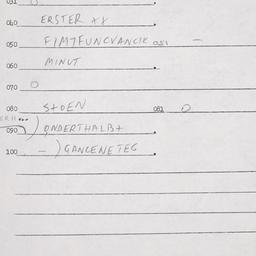 031
040 ERSTER
050 051
060 MINUT
070
080 STOEN 081
090 ) ONDERTHALB+
100 - ) GANCENETEG